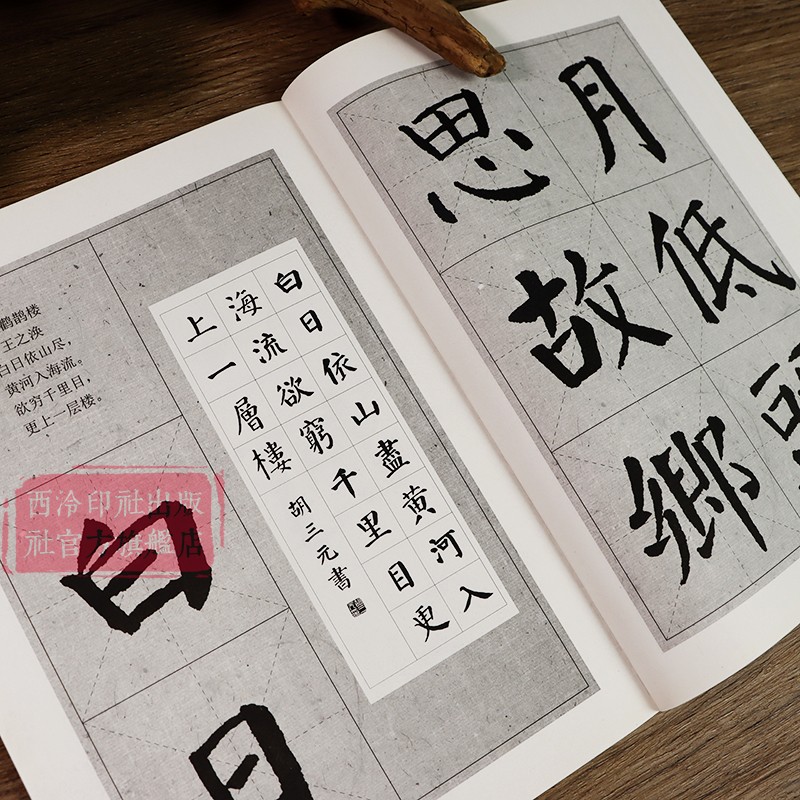 鹳鹊楼
王之涣
白日依山尽,
黄河入海流。
欲穷千里目,
更上一层楼。
白日依山盡黄河入
海流欲窮千里目更
上一層樓
胡三元書
白日
月低
思故鄉
西泠印社出版
社官方旗艦店